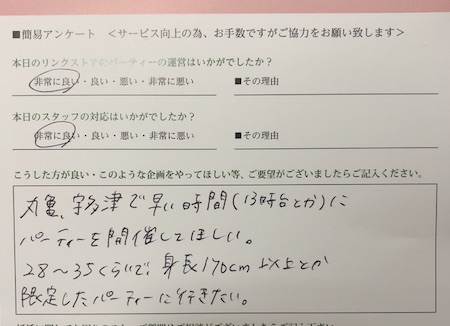 ■簡易アンケート ＜サービス向上の為、お手数ですがご協力をお願い致します＞
本日のリンクストアのパーティーの運営はいかがでしたか？
非常に良い・良い・悪い・非常に悪い ■その理由
本日のスタッフの対応はいかがでしたか？
非常に良い・良い・悪い・非常に悪い ■その理由
こうした方が良い・このような企画をやってほしい等、ご要望がございましたらご記入ください。
丸亀、宇多津で早い時間(13時台とか)に
パーティーを開催してほしい。
28～35くらいで、身長170cm以上とか
限定したパーティーに行きたい。